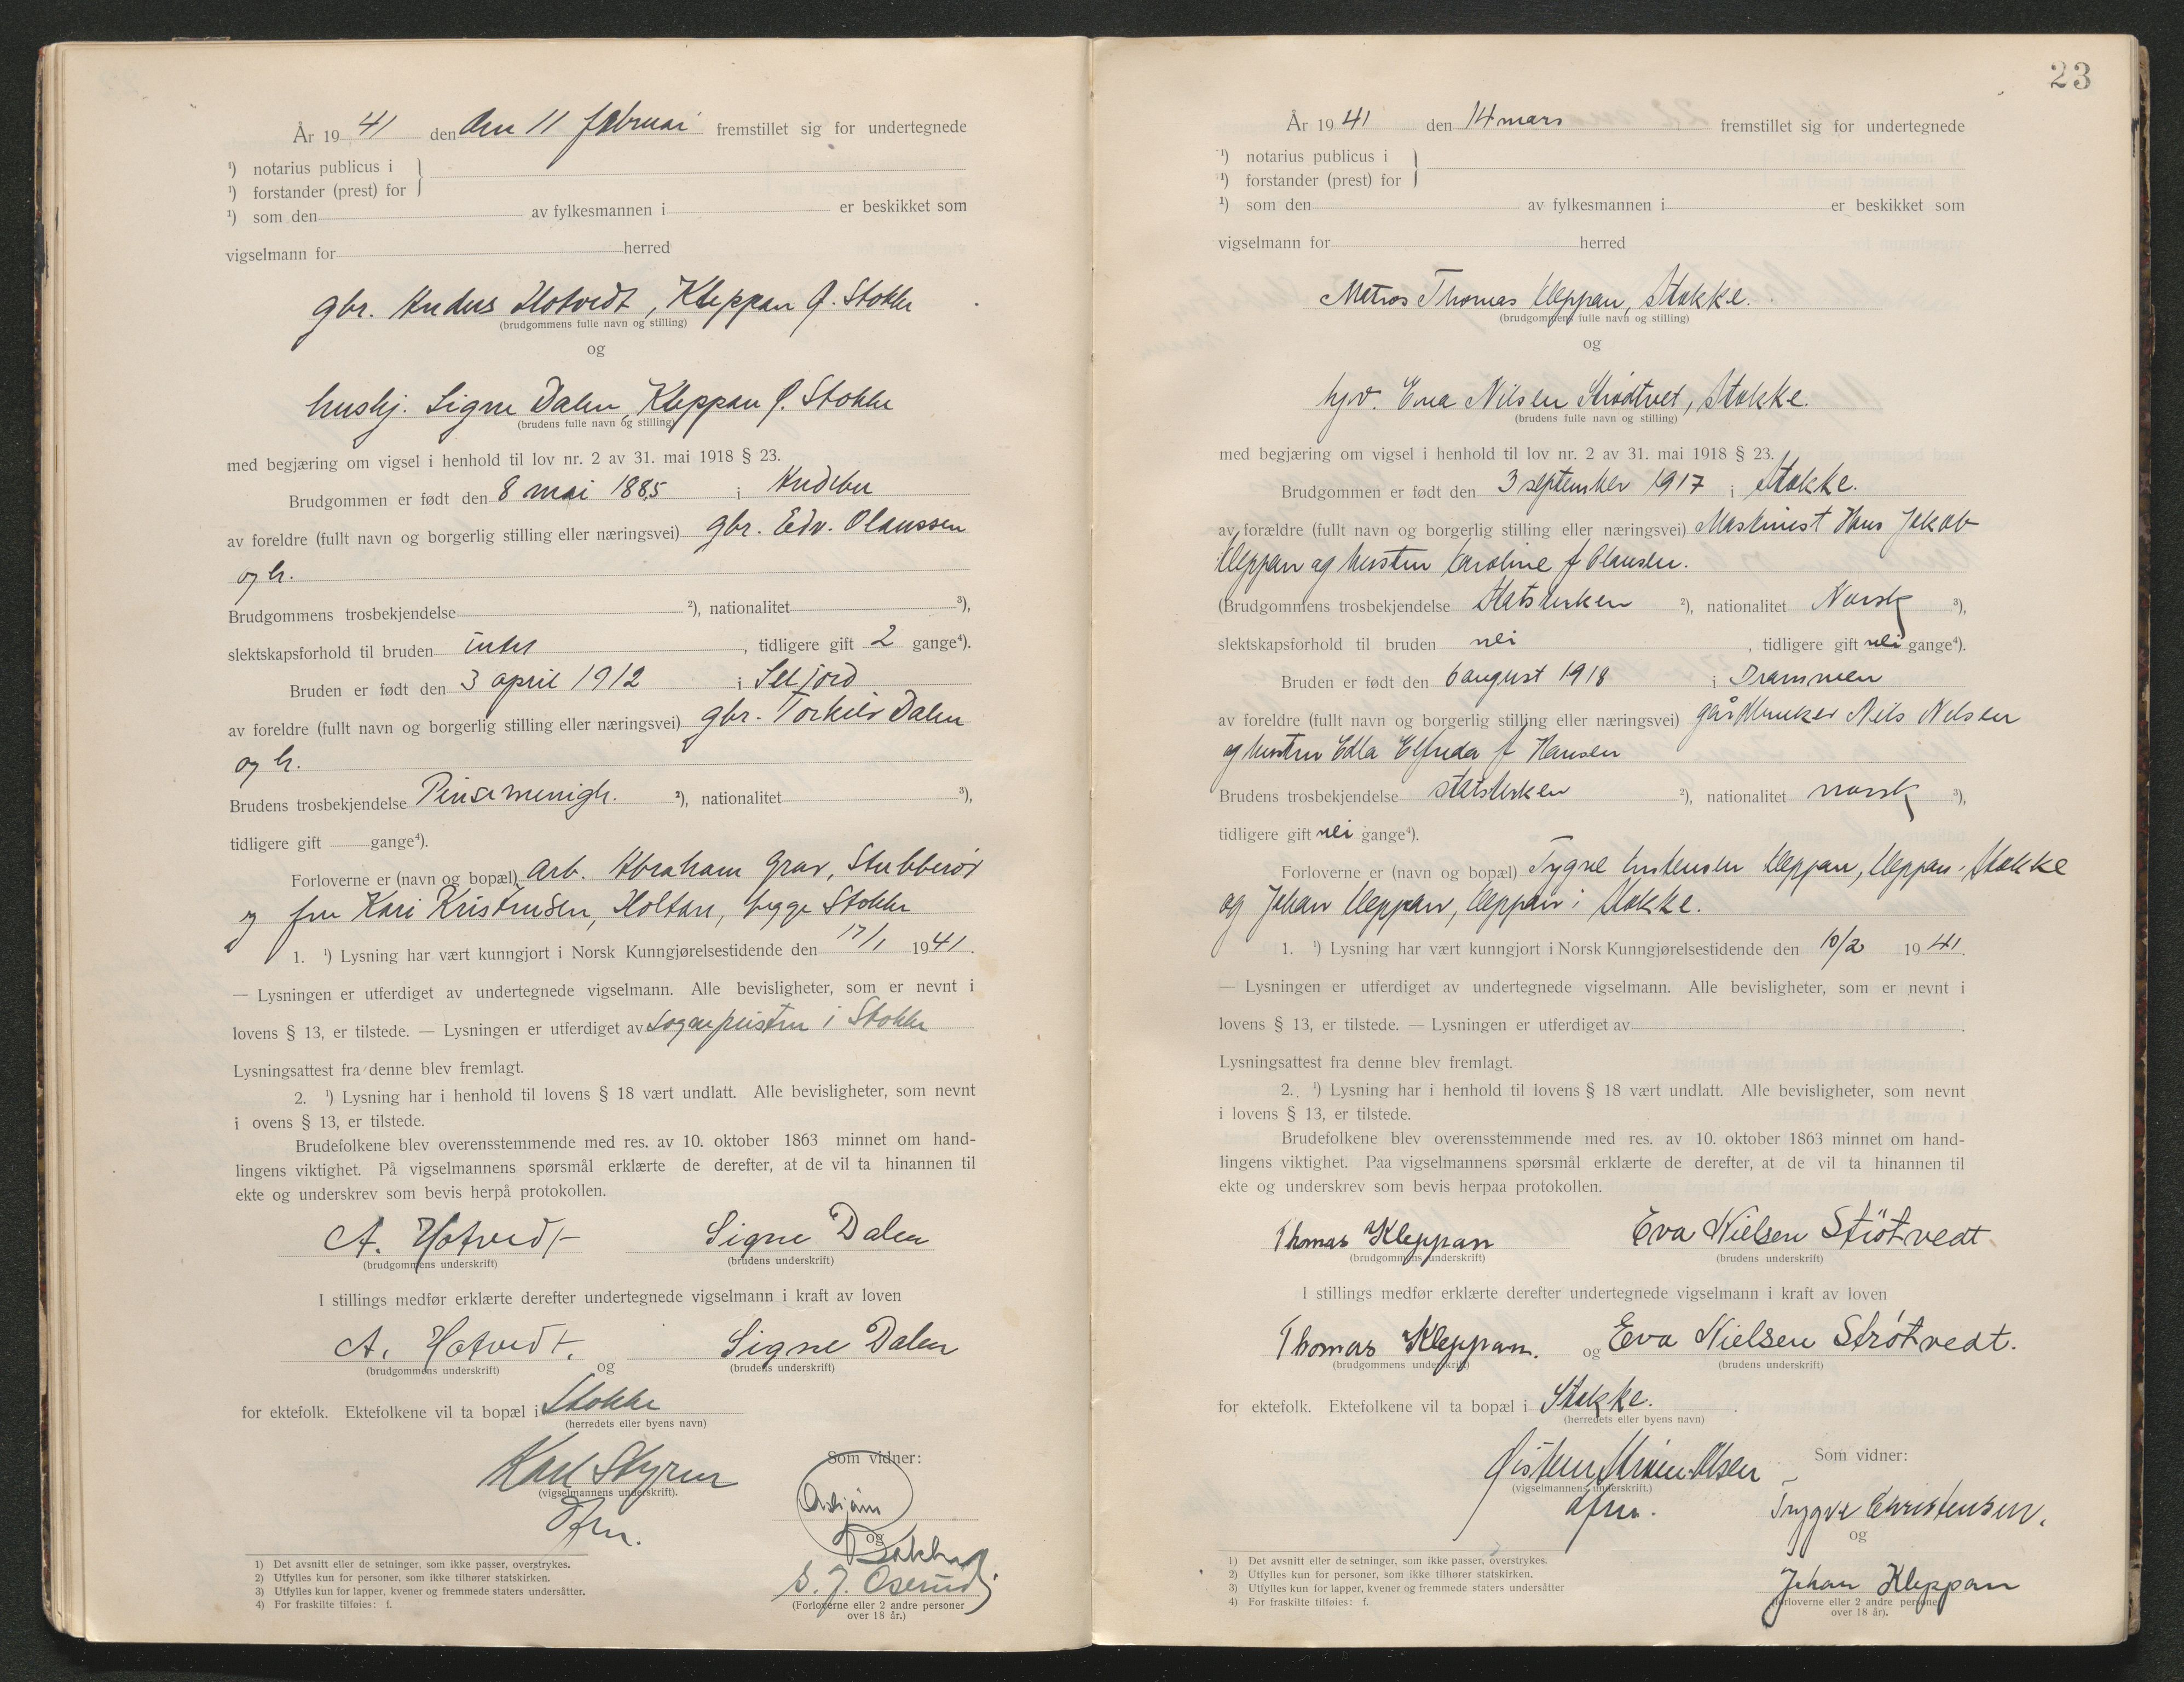 År 1941 den den 11 februar fremstillet sig for undertegnede
¹) notarius publicus i
¹) forstander (prest) for
¹) som den av fylkesmannen i er beskikket som
vigselmann for herred
gbr. Anders Hotvedt, Kleppan p. Stokke
(brudgommens fulle navn og stilling)
og
hushj. Signe Dalen, Kleppan p. Stokke
(brudens fulle navn og stilling)
med begjæring om vigsel i henhold til lov nr. 2 av 31. mai 1918 § 23.
Brudgommen er født den 8 mai 1885 i Andebu
av foreldre (fullt navn og borgerlig stilling eller næringsvei) gbr. Edv. Olaussen
og h.
Brudgommens trosbekjendelse ²), nationalitet ³),
slektskapsforhold til bruden intet, tidligere gift 2 gange⁴).
Bruden er født den 3 april 1912 i Seljord
av foreldre (fullt navn og borgerlig stilling eller næringsvei) gbr. Torkild Dalen
og h.
Brudens trosbekjendelse Pinsemenigh. ²), nationalitet ³),
tidligere gift gange⁴).
Forloverne er (navn og bopæl) arb. Abraham Grav, Stubberød
og fru Kari Kristensen, Holtan, begge Stokke
1. ¹) Lysning har vært kunngjort i Norsk Kunngjørelsestidende den 17/1 1941.
— Lysningen er utferdiget av undertegnede vigselmann. Alle bevisligheter, som er nevnt i
lovens § 13, er tilstede. — Lysningen er utferdiget av sognepresten i Stokke
Lysningsattest fra denne blev fremlagt.
2. ¹) Lysning har i henhold til lovens § 18 vært undlatt. Alle bevisligheter, som nevnt
i ovens § 13, er tilstede.
Brudefolkene blev overensstemmende med res. av 10. oktober 1863 minnet om hand-
lingens viktighet. På vigselmannens spørsmål erklærte de derefter, at de vil ta hinannen til
ekte og underskrev som bevis herpå protokollen.
A. Hotvedt Signe Dalen
(brudgommens underskrift) (brudens underskrift)
I stillings medfør erklærte derefter undertegnede vigselmann i kraft av loven
A. Hotvedt. og Signe Dalen
(brudgommens underskrift) (brudens underskrift)
for ektefolk. Ektefolkene vil ta bopæl i Stokke
(herredets eller byens navn)
Karl Styren Som vidner:
(vigselmannens underskrift).
og
S. J. Oserud
(Forloverne eller 2 andre personer
over 18 år.)
1) Det avsnitt eller de setninger, som ikke passer, overstrykes.
2) Utfylles kun for personer, som ikke tilhører statskirken.
3) Utfylles kun for lapper, kvener og fremmede staters undersåtter.
4) For fraskilte tilføies: f.
23
År 1941 den 14 mars fremstillet sig for undertegnede
¹) notarius publicus i
¹) forstander (prest) for
¹) som den av fylkesmannen i er beskikket som
vigselmann for herred
Matros Thomas Kleppan, Stokke.
(brudgommens fulle navn og stilling)
og
hjv. Eva Nilsen Strødtvet, Stokke.
(brudens fulle navn og stilling)
med begjæring om vigsel i henhold til lov nr. 2 av 31. mai 1918 § 23.
Brudgommen er født den 3 september 1917 i Stokke.
av forældre (fullt navn og borgerlig stilling eller næringsvei) Maskinist Hans Jakob
Kleppan og hustru Karoline f Olausen.
(Brudgommens trosbekjendelse Statskirken ²), nationalitet Norsk ³),
slektskapsforhold til bruden nei, tidligere gift nei gange⁴).
Bruden er født den 6 august 1918 i Drammen
av foreldre (fullt navn og borgerlig stilling eller næringsvei) gårdbruker Nils Nilsen
og hustru Edla Elfrida f Hansen
Brudens trosbekjendelse statskirken ²), nationalitet norsk ³),
tidligere gift nei gange⁴).
Forloverne er (navn og bopæl) Trygve Kristensen Kleppan, Kleppan i Stokke
og Johan Kleppan, Kleppan i Stokke.
1. ¹) Lysning har vært kunngjort i Norsk Kunngjørelsestidende den 10/2 1941.
— Lysningen er utferdiget av undertegnede vigselmann. Alle bevisligheter, som er nevnt i
lovens § 13, er tilstede. — Lysningen er utferdiget av
Lysningsattest fra denne blev fremlagt.
2. ¹) Lysning har i henhold til lovens § 18 vært undlatt. Alle bevisligheter, som nevnt
i lovens § 13, er tilstede.
Brudefolkene blev overensstemmende med res. av 10. oktober 1863 minnet om hand-
lingens viktighet. Paa vigselmannens spørsmål erklærte de derefter, at de vil ta hinannen til
ekte og underskrev som bevis herpaa protokollen.
Thomas Kleppan Eva Nielsen Strötvedt
(brudgommens underskrift) (brudens underskrift)
I stillings medfør erklærte derefter undertegnede vigselmann i kraft av loven
Thomas Kleppan. og Eva Nielsen Strøtvedt.
(brudgommens underskrift) (brudens underskrift)
for ektefolk. Ektefolkene vil ta bopæl i Stokke.
(herredets eller byens navn)
Som vidner:
(vigselmannens underskrift.)
Trygve Christensen.
og
Johan Kleppan
(Forloverne eller 2 andre personer
over 18 år).
1) Det avsnitt eller de setninger, som ikke passer, overstrykes.
2) Utfylles kun for personer, som ikke tilhører statskirken.
3) Utfylles kun for lapper, kvener og fremmede staters undersåtter
4) For fraskilte tilføies: f.